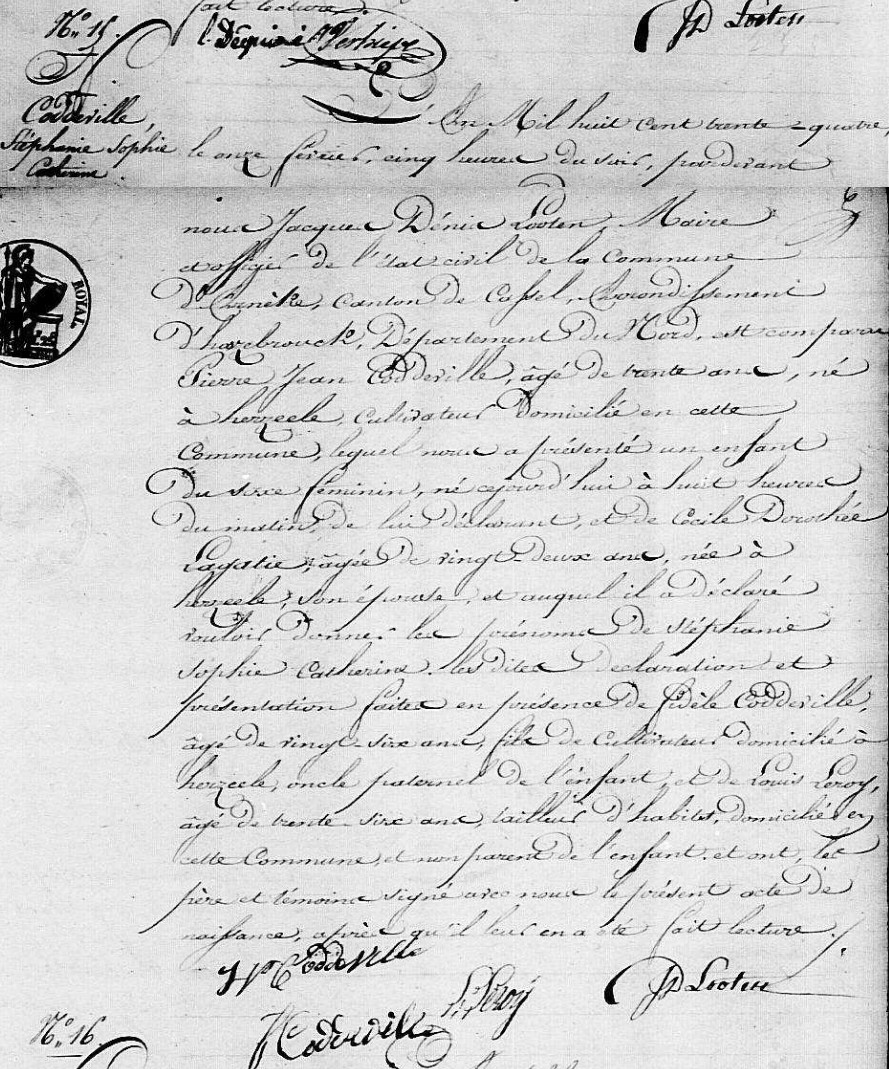 fait lecture.
N.° 15
JD Looten
Codderville
Stéphanie Sophie
Catherine.
An Mil huit cent trente-quatre,
le onze février, cinq heures du soir, pardevant
nous Jacques Dénis Looten, Maire
et officier de l'état civil de la Commune
D'Arnèke, canton de Cassel, Arrondissement
D'hazebrouck, Département du Nord, est comparu
Pierre Jean Codderville, âgé de trente ans, né
à herzeele, cultivateur domicilié en cette
Commune, lequel nous a présenté un enfant
Du sexe féminin, né cejourd'hui à huit heures
du matin, de lui déclarant, et de Cécile Dorothée
Lagatie, âgée de vingt-deux ans, née à
herzeele, son épouse, et auquel il a déclaré
vouloir donner les prénoms de Stéphanie
Sophie Catherine. lesdites declaration et
présentation faites en présence de fidèle Codderville,
âgé de vingt-six ans, fils de cultivateur domicilié à
herzeele, oncle paternel de l'enfant, et de Louis Leroy,
âgé de trente-six ans, tailleur d'habits, domicilié en
cette Commune, et non parent de l'enfant. et ont, les
père et témoins signé avec nous le présent acte de
naissance, après qu'il leur en a été fait lecture.
Codderville
L. Leroy
JD Looten
Coderville
N.° 16.
ROYAL